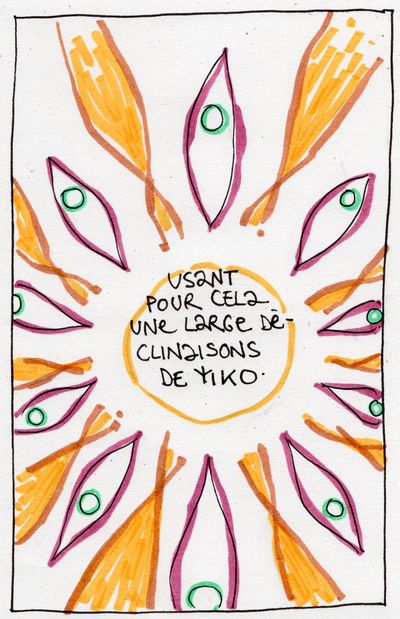 USANT
POUR CELA
UNE LARGE DÈ-
CLINAISONS
DE YIKO.